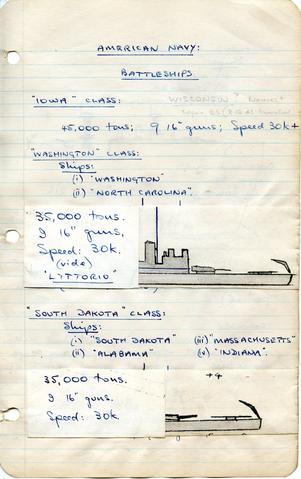 AMERICAN NAVY:
BATTLESHIPS
"IOWA" CLASS: WISCONSIN" Newest
45,000 tons; 9 16" guns; Speed 30k+
"WASHINGTON" CLASS:
Ships:
(i) "WASHINGTON"
(ii) "NORTH CAROLINA".
35,000 tons.
9 16" guns,
Speed: 30k.
(vide)
"LITTORIO"
"SOUTH DAKOTA" CLASS:
Ships:
(i) "SOUTH DAKOTA" (iii) "MASSACHUSETTS"
(ii) "ALABAMA" (iv) "INDIANA".
35,000 tons.
9 16" guns.
Speed: 30k.